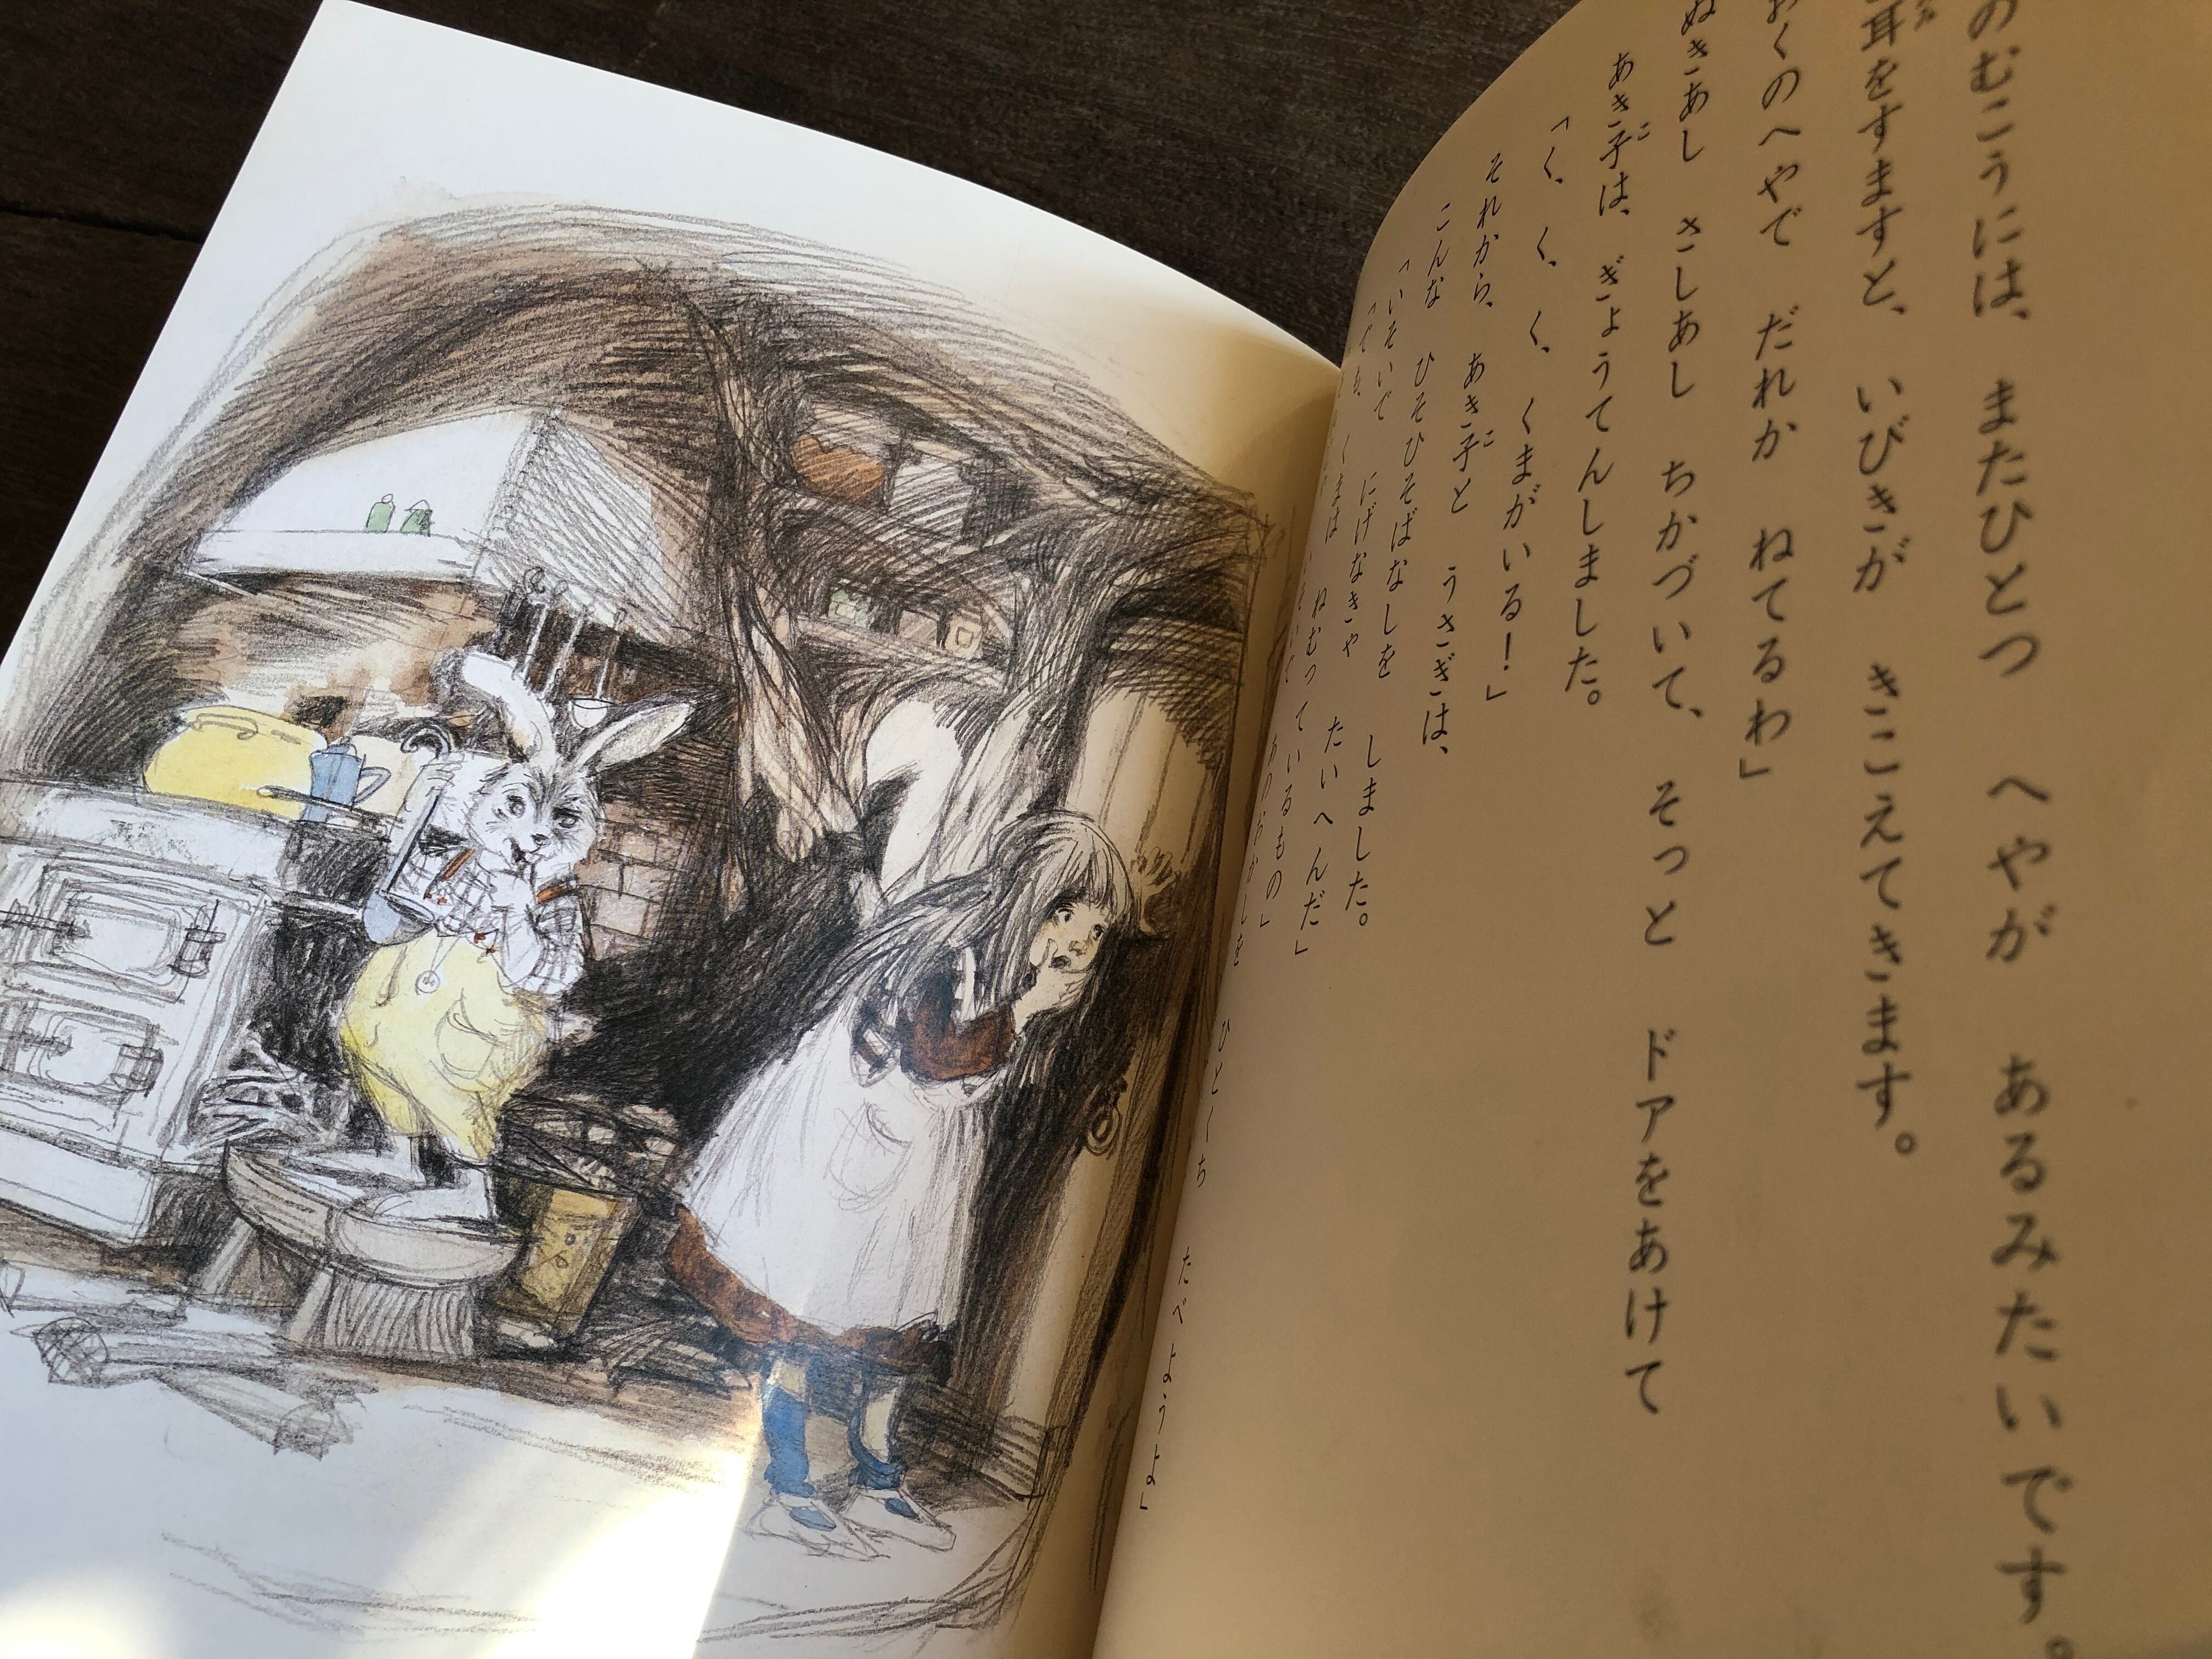 のむこうには、またひとつ へやが あるみたいです。
耳をすますと、いびきが きこえてきます。
おくのへやで だれか ねてるわ」
ぬきあし さしあし ちかづいて、そっと ドアをあけて
あき子は、ぎょうてんしました。
「く、く、く、くまがいる！」
それから、あき子と うさぎは、
こんな ひそひそばなしを しました。
「いそいで にげなきゃ たいへんだ」
「でも、くまは ねむっているもの」
いそいで あのおかしを ひとくち たべようよ」